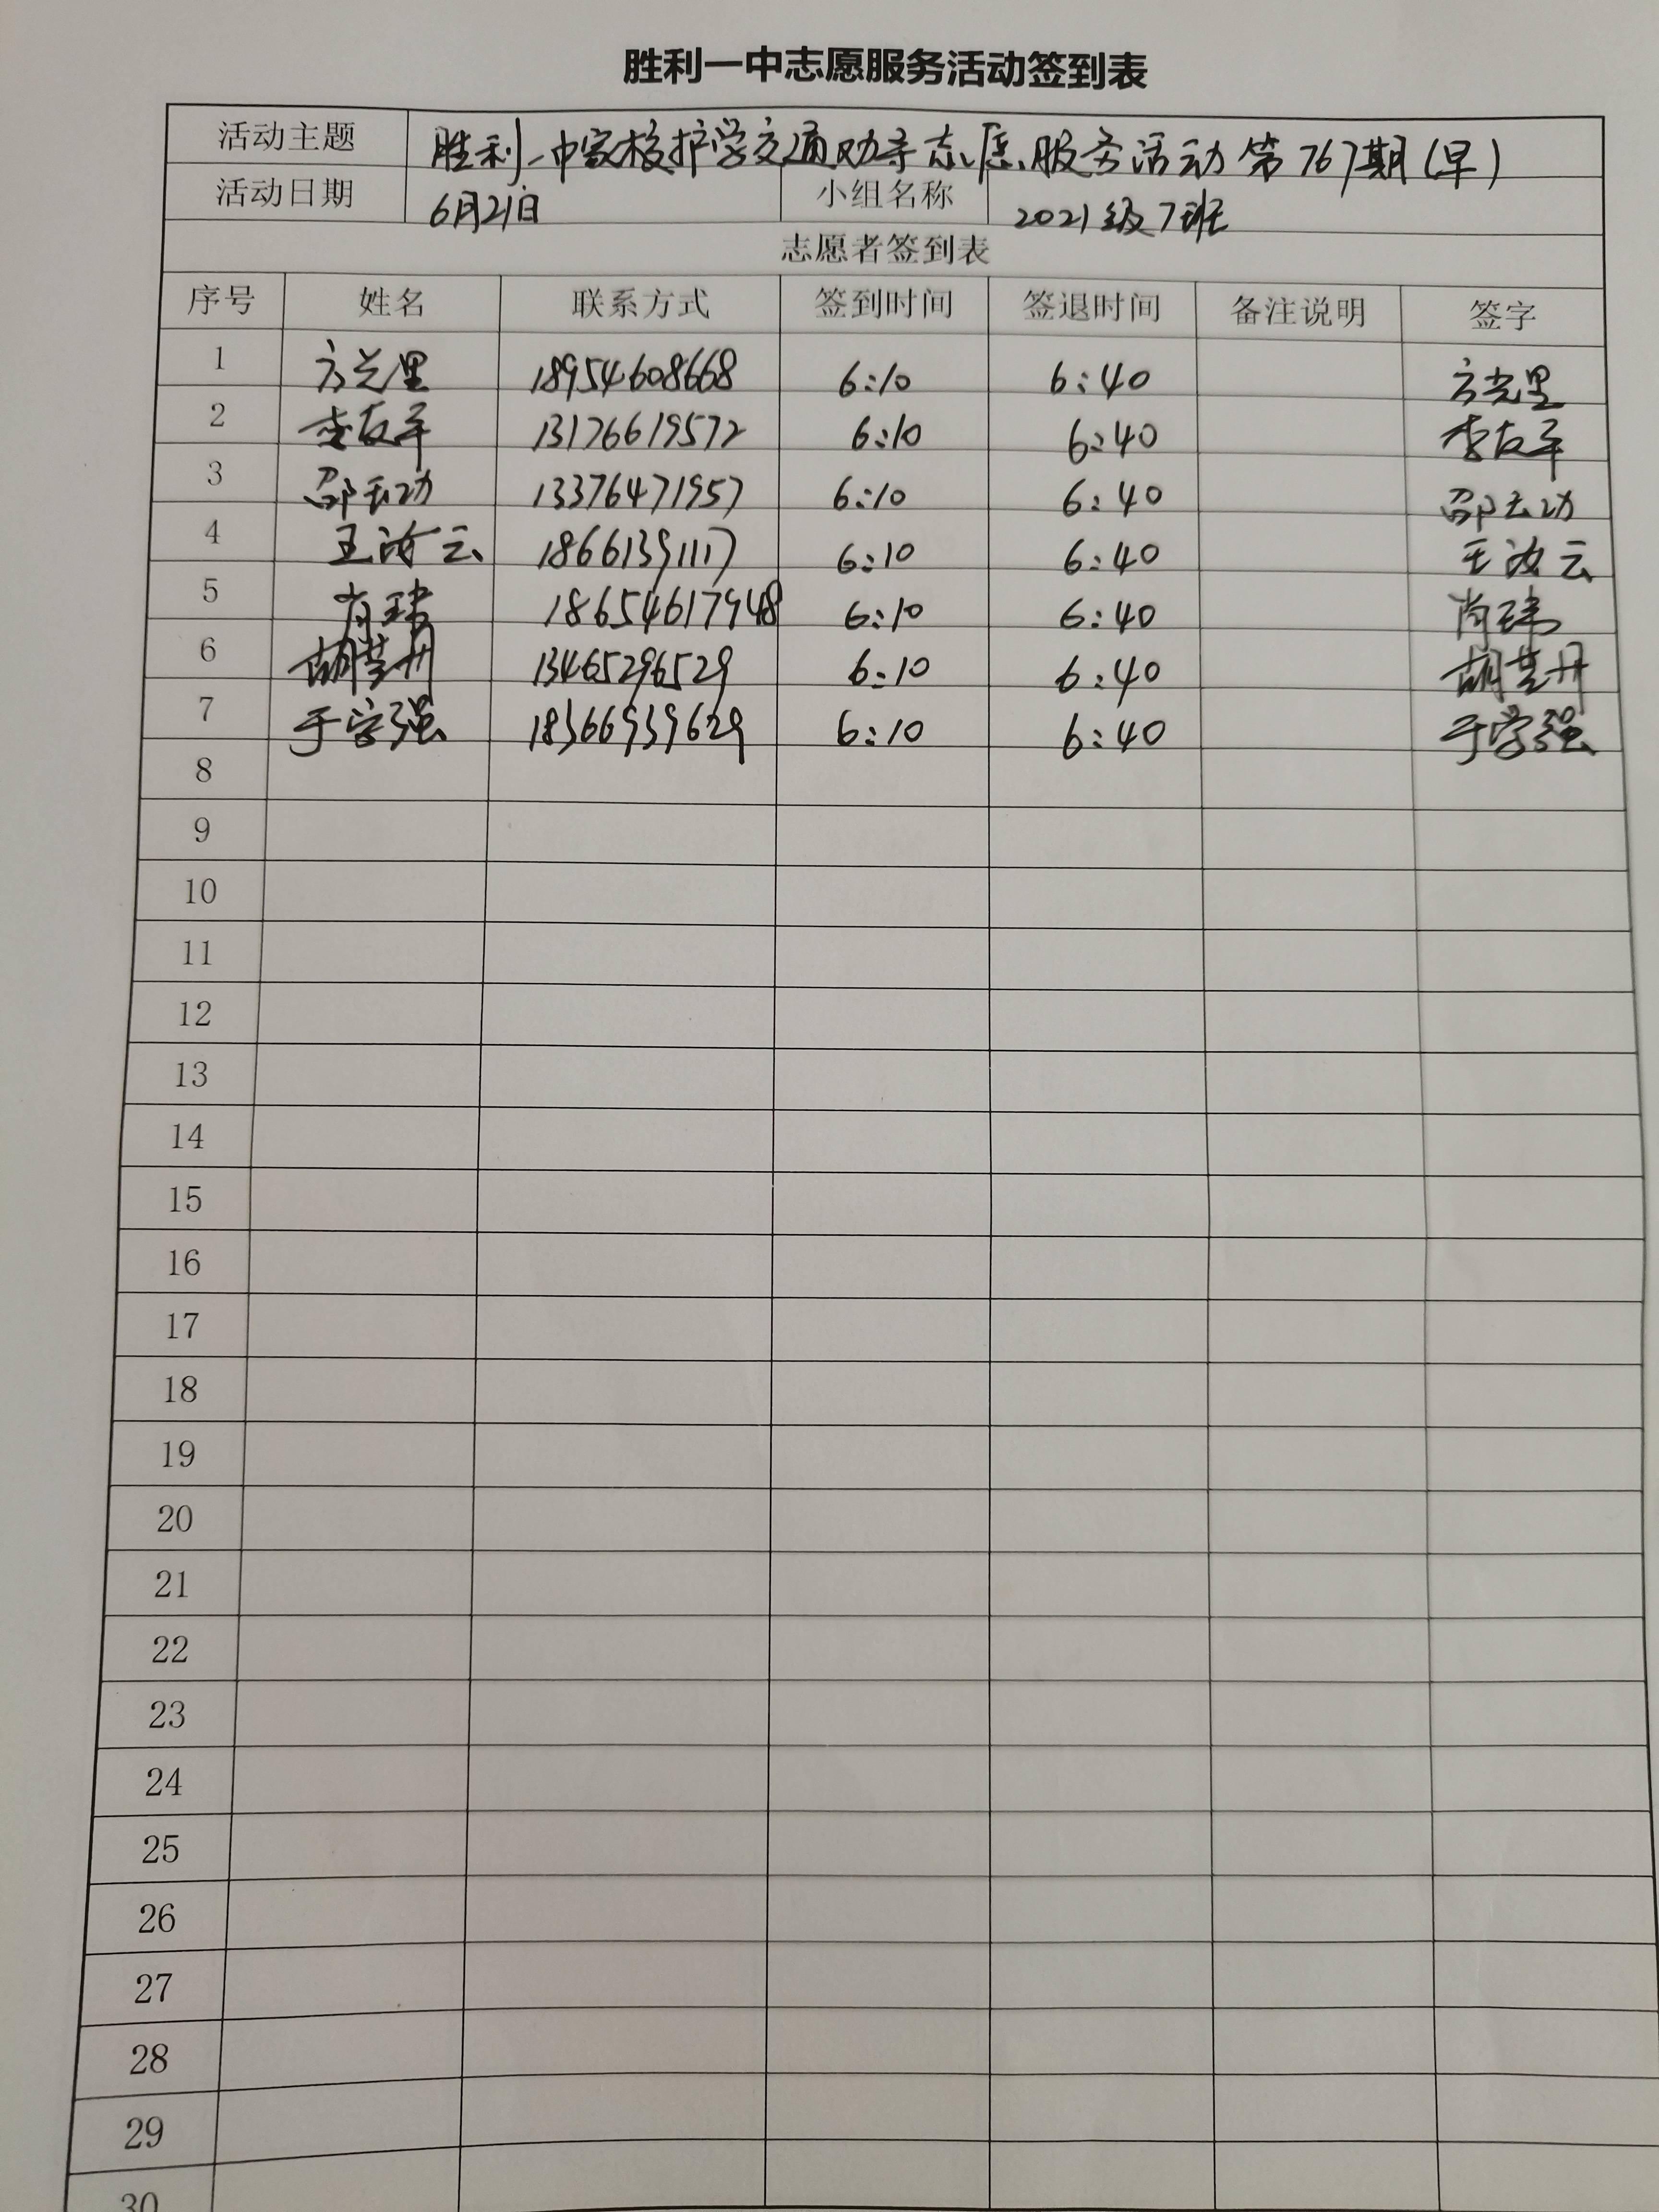 胜利一中志愿服务活动签到表
活动主题 胜利一中家校护学交通劝导志愿服务活动第767期(早)
活动日期 6月21日 小组名称 2021级7班
志愿者签到表
序号 姓名 联系方式 签到时间 签退时间 备注说明 签字
1 方光里 18954608668 6:10 6:40 方光里
2 李友军 13176619572 6:10 6:40 李友军
3 邵玉功 13376471957 6:10 6:40 邵玉功
4 王汝云 18661391117 6:10 6:40 王汝云
5 肖玮 18654617948 6:10 6:40 肖玮
6 胡 13465296529 6:10 6:40 胡
7 于学强 18366939629 6:10 6:40 于学强
8
9
10
11
12
13
14
15
16
17
18
19
20
21
22
23
24
25
26
27
28
29
30